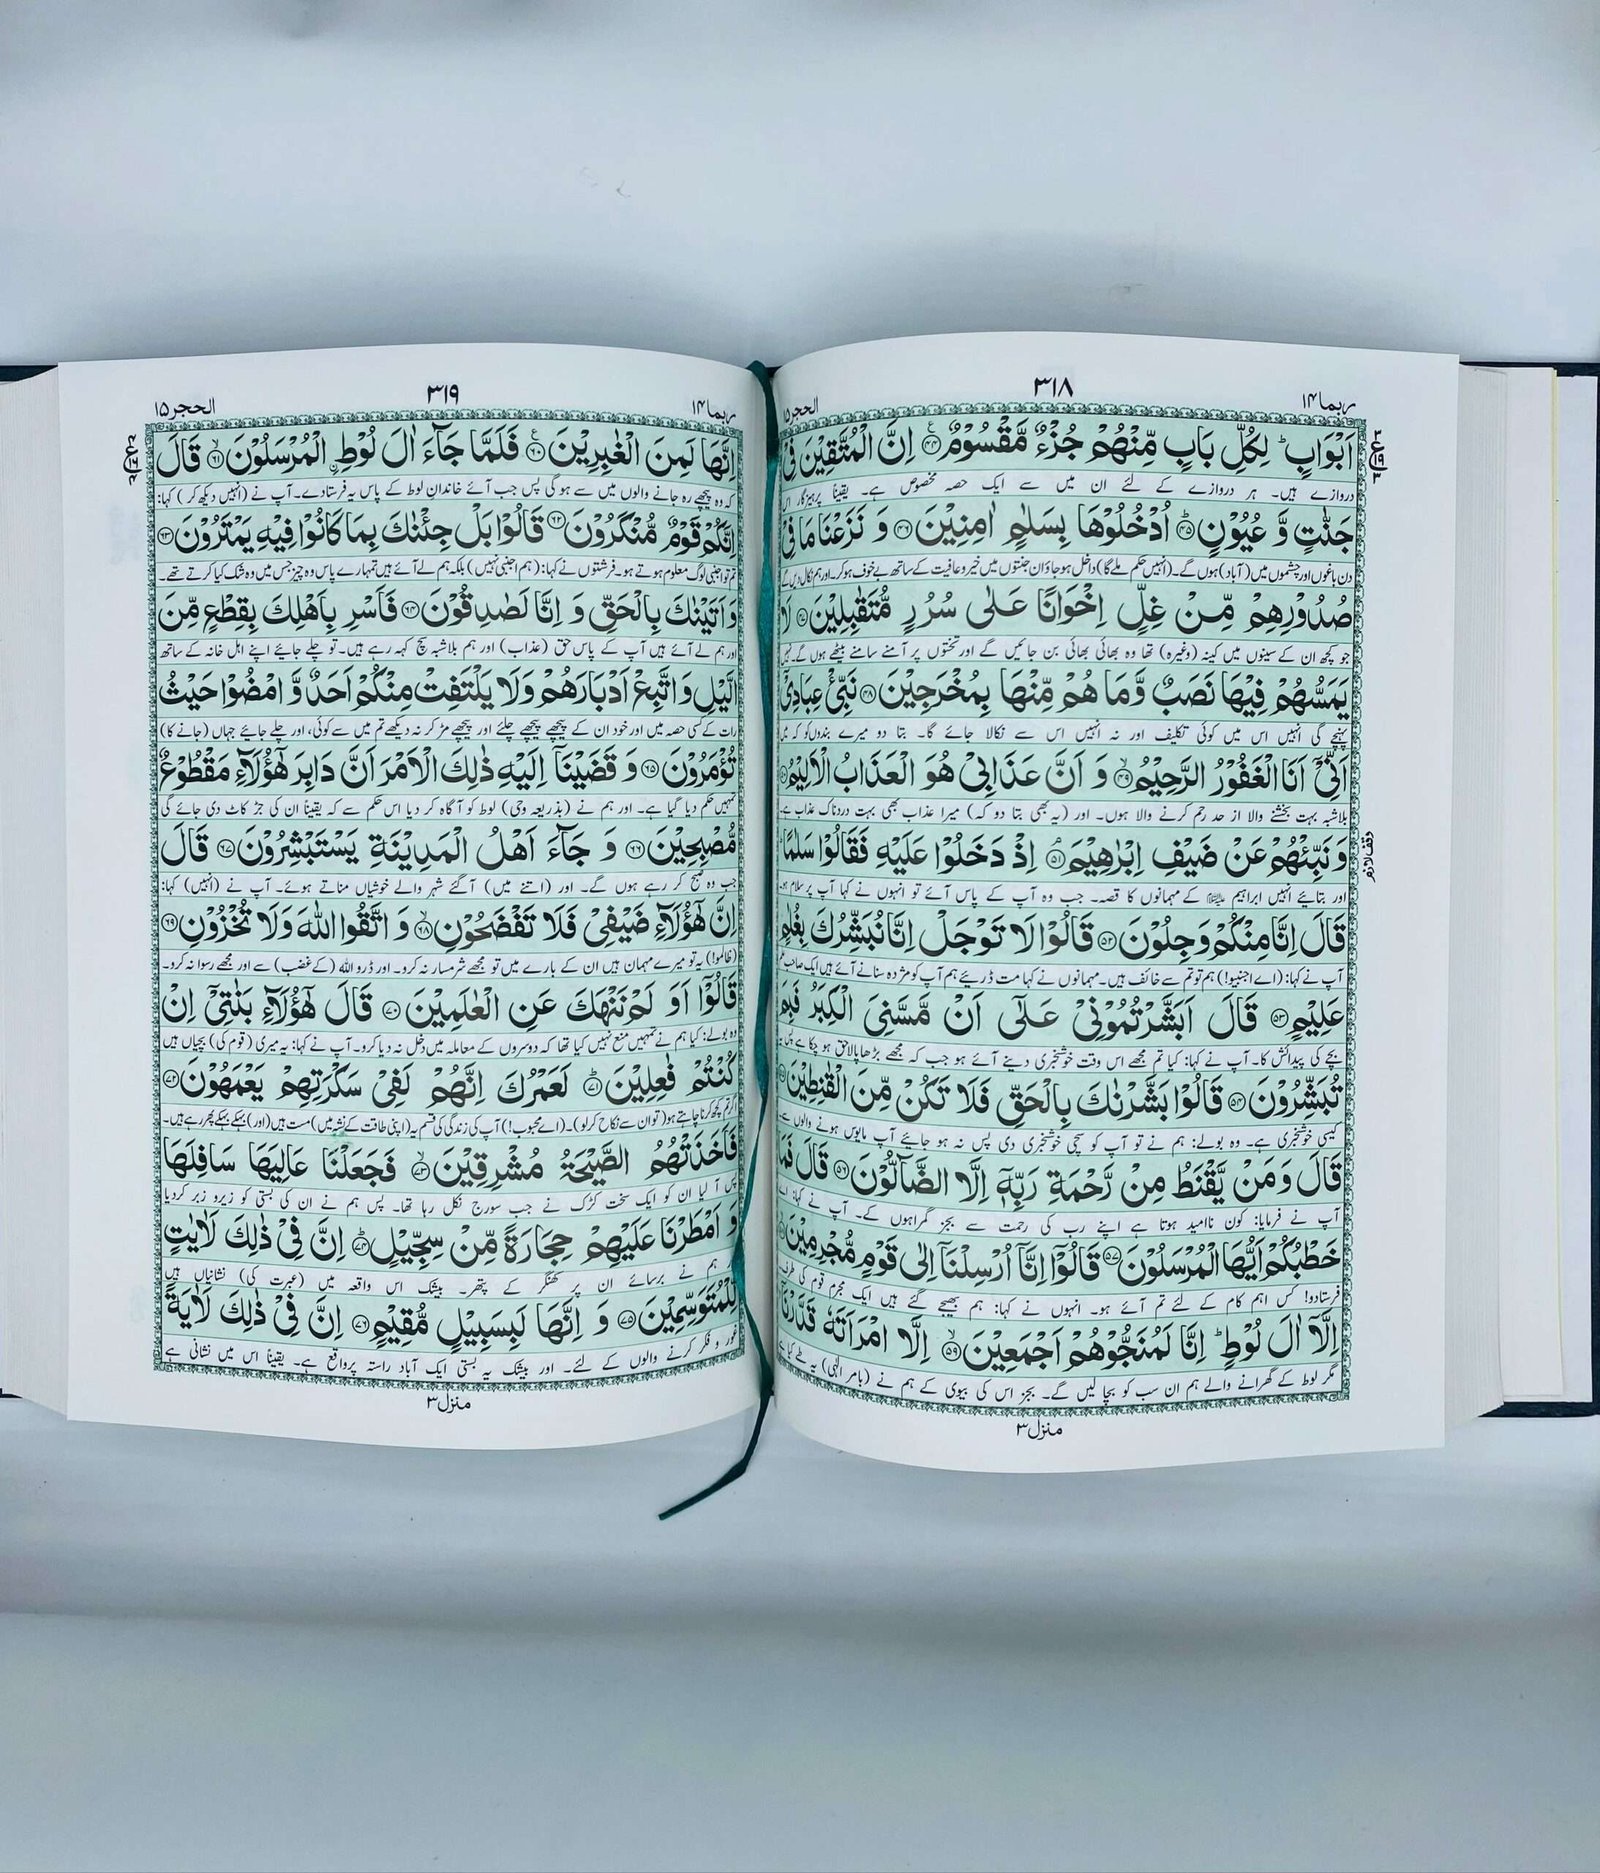 ربما ۱۴
۳۱۸
الحجر ۱۵
اَبْوَابٍ ؕ لِكُلِّ بَابٍ مِّنْهُمْ جُزْءٌ مَّقْسُوْمٌ ﴿۴۴﴾ اِنَّ الْمُتَّقِيْنَ فِيْ
دروازے ہیں۔ ہر دروازے کے لئے ان میں سے ایک حصہ مخصوص ہے۔ یقیناً پرہیزگار اس
جَنّٰتٍ وَّ عُيُوْنٍ ﴿۴۵﴾ اُدْخُلُوْهَا بِسَلٰمٍ اٰمِنِيْنَ ﴿۴۶﴾ وَ نَزَعْنَا مَا فِيْ
دن باغوں اور چشموں میں (آباد) ہوں گے۔ (انہیں حکم ملے گا) داخل ہو جاؤ ان جنتوں میں خیر و عافیت کے ساتھ بے خوف ہو کر۔ اور ہم نکال دیں گے
صُدُوْرِهِمْ مِّنْ غِلٍّ اِخْوَانًا عَلٰى سُرُرٍ مُّتَقٰبِلِيْنَ ﴿۴۷﴾ لَا
جو کچھ ان کے سینوں میں کینہ (وغیرہ) تھا وہ بھائی بھائی بن جائیں گے اور تختوں پر آمنے سامنے بیٹھے ہوں گے۔ نہیں
يَمَسُّهُمْ فِيْهَا نَصَبٌ وَّمَا هُمْ مِّنْهَا بِمُخْرَجِيْنَ ﴿۴۸﴾ نَبِّئْ عِبَادِيْۤ
پہنچے گی انہیں اس میں کوئی تکلیف اور نہ انہیں اس سے نکالا جائے گا۔ بتا دو میرے بندوں کو کہ میں
اَنِّيْۤ اَنَا الْغَفُوْرُ الرَّحِيْمُ ﴿۴۹﴾ وَ اَنَّ عَذَابِيْ هُوَ الْعَذَابُ الْاَلِيْمُ ﴿۵۰﴾
بلاشبہ بہت بخشنے والا از حد رحم کرنے والا ہوں۔ اور (یہ بھی بتا دو کہ) میرا عذاب بھی بہت دردناک عذاب ہے۔
وَنَبِّئْهُمْ عَنْ ضَيْفِ اِبْرٰهِيْمَ ﴿۵۱﴾ اِذْ دَخَلُوْا عَلَيْهِ فَقَالُوْا سَلٰمًا ؕ
اور بتائیے انہیں ابراہیم کے مہمانوں کا قصہ۔ جب وہ آپ کے پاس آئے تو انہوں نے کہا آپ پر سلام ہو۔
قَالَ اِنَّا مِنْكُمْ وَجِلُوْنَ ﴿۵۲﴾ قَالُوْا لَا تَوْجَلْ اِنَّا نُبَشِّرُكَ بِغُلٰمٍ
آپ نے کہا: (اے اجنبیو!) ہم تو تم سے خائف ہیں۔ مہمانوں نے کہا مت ڈریئے ہم آپ کو مژدہ سنانے آئے ہیں ایک صاحب علم
عَلِيْمٍ ﴿۵۳﴾ قَالَ اَبَشَّرْتُمُوْنِيْ عَلٰۤى اَنْ مَّسَّنِيَ الْكِبَرُ فَبِمَ
بچے کی پیدائش کا۔ آپ نے کہا: کیا تم مجھے اس وقت خوشخبری دینے آئے ہو جب کہ مجھے بڑھاپا لاحق ہو چکا ہے
تُبَشِّرُوْنَ ﴿۵۴﴾ قَالُوْا بَشَّرْنٰكَ بِالْحَقِّ فَلَا تَكُنْ مِّنَ الْقٰنِطِيْنَ ﴿۵۵﴾
کیسی خوشخبری ہے۔ وہ بولے: ہم نے تو آپ کو سچی خوشخبری دی پس نہ ہو جایئے آپ مایوس ہونے والوں سے۔
قَالَ وَمَنْ يَّقْنَطُ مِنْ رَّحْمَةِ رَبِّهٖۤ اِلَّا الضَّآلُّوْنَ ﴿۵۶﴾ قَالَ فَمَا
آپ نے فرمایا: کون ناامید ہوتا ہے اپنے رب کی رحمت سے بجز گمراہوں کے۔ آپ نے کہا: اے
خَطْبُكُمْ اَيُّهَا الْمُرْسَلُوْنَ ﴿۵۷﴾ قَالُوْۤا اِنَّاۤ اُرْسِلْنَاۤ اِلٰى قَوْمٍ مُّجْرِمِيْنَ ﴿۵۸﴾
فرستادو! کس اہم کام کے لئے تم آئے ہو۔ انہوں نے کہا: ہم بھیجے گئے ہیں ایک مجرم قوم کی طرف
اِلَّاۤ اٰلَ لُوْطٍ ؕ اِنَّا لَمُنَجُّوْهُمْ اَجْمَعِيْنَ ﴿۵۹﴾ اِلَّا امْرَاَتَهٗ قَدَّرْنَاۤ
مگر لوط کے گھرانے والے ہم ان سب کو بچا لیں گے۔ بجز اس کی بیوی کے ہم نے (بامر الٰہی) یہ طے کیا ہے
وقف لازم
منزل ۳
ربما ۱۴
۳۱۹
الحجر ۱۵
اِنَّهَا لَمِنَ الْغٰبِرِيْنَ ﴿۶۰﴾ فَلَمَّا جَآءَ اٰلَ لُوْطِ ِ۟الْمُرْسَلُوْنَ ﴿۶۱﴾ قَالَ
کہ وہ پیچھے رہ جانے والوں میں سے ہو گی پس جب آئے خاندان لوط کے پاس یہ فرستادے۔ آپ نے (انہیں دیکھ کر) کہا:
اِنَّكُمْ قَوْمٌ مُّنْكَرُوْنَ ﴿۶۲﴾ قَالُوْا بَلْ جِئْنٰكَ بِمَا كَانُوْا فِيْهِ يَمْتَرُوْنَ ﴿۶۳﴾
تم تو اجنبی لوگ معلوم ہوتے ہو۔ فرشتوں نے کہا: (ہم اجنبی نہیں) بلکہ ہم لے آئے ہیں تمہارے پاس وہ چیز جس میں وہ شک کیا کرتے تھے۔
وَاَتَيْنٰكَ بِالْحَقِّ وَ اِنَّا لَصٰدِقُوْنَ ﴿۶۴﴾ فَاَسْرِ بِاَهْلِكَ بِقِطْعٍ مِّنَ
اور ہم لے آئے ہیں آپ کے پاس حق (عذاب) اور ہم بلاشبہ سچ کہہ رہے ہیں۔ تو چلے جایئے اپنے اہل خانہ کے ساتھ
الَّيْلِ وَاتَّبِعْ اَدْبَارَهُمْ وَلَا يَلْتَفِتْ مِنْكُمْ اَحَدٌ وَّ امْضُوْا حَيْثُ
رات کے کسی حصہ میں اور خود ان کے پیچھے پیچھے چلئے اور پیچھے مڑ کر نہ دیکھے تم میں سے کوئی، اور چلے جایئے جہاں (جانے کا)
تُؤْمَرُوْنَ ﴿۶۵﴾ وَ قَضَيْنَاۤ اِلَيْهِ ذٰلِكَ الْاَمْرَ اَنَّ دَابِرَ هٰۤؤُلَآءِ مَقْطُوْعٌ
تمہیں حکم دیا گیا ہے۔ اور ہم نے (بذریعہ وحی) لوط کو آگاہ کر دیا اس حکم سے کہ یقیناً ان کی جڑ کاٹ دی جائے گی
مُّصْبِحِيْنَ ﴿۶۶﴾ وَ جَآءَ اَهْلُ الْمَدِيْنَةِ يَسْتَبْشِرُوْنَ ﴿۶۷﴾ قَالَ
جب وہ صبح کر رہے ہوں گے۔ اور (اتنے میں) آ گئے شہر والے خوشیاں مناتے ہوئے۔ آپ نے (انہیں) کہا:
اِنَّ هٰۤؤُلَآءِ ضَيْفِيْ فَلَا تَفْضَحُوْنِ ﴿۶۸﴾ وَ اتَّقُوا اللّٰهَ وَلَا تُخْزُوْنِ ﴿۶۹﴾
(ظالمو!) یہ تو میرے مہمان ہیں ان کے بارے میں تو مجھے شرمسار نہ کرو۔ اور ڈرو اللہ (کے غضب) سے اور مجھے رسوا نہ کرو۔
قَالُوْۤا اَوَ لَمْ نَنْهَكَ عَنِ الْعٰلَمِيْنَ ﴿۷۰﴾ قَالَ هٰۤؤُلَآءِ بَنٰتِيْۤ اِنْ
وہ بولے: کیا ہم نے تمہیں منع نہیں کیا تھا کہ دوسروں کے معاملہ میں دخل نہ دیا کرو۔ آپ نے کہا: یہ میری (قوم کی) بچیاں ہیں
كُنْتُمْ فٰعِلِيْنَ ﴿۷۱﴾ لَعَمْرُكَ اِنَّهُمْ لَفِيْ سَكْرَتِهِمْ يَعْمَهُوْنَ ﴿۷۲﴾
اگر تم کچھ کرنا چاہتے ہو (تو ان سے نکاح کر لو)۔ (اے محبوب!) آپ کی زندگی کی قسم یہ (اپنی طاقت کے نشہ میں) مست ہیں (اور) بہکے بہکے پھر رہے ہیں۔
فَاَخَذَتْهُمُ الصَّيْحَةُ مُشْرِقِيْنَ ﴿۷۳﴾ فَجَعَلْنَا عَالِيَهَا سَافِلَهَا
پس آ لیا ان کو ایک سخت کڑک نے جب سورج نکل رہا تھا۔ پس ہم نے ان کی بستی کو زیر و زبر کر دیا
وَ اَمْطَرْنَا عَلَيْهِمْ حِجَارَةً مِّنْ سِجِّيْلٍ ﴿۷۴﴾ اِنَّ فِيْ ذٰلِكَ لَاٰيٰتٍ
ہم نے برسائے ان پر کھنگر کے پتھر۔ بیشک اس واقعہ میں (عبرت کی) نشانیاں ہیں
لِّلْمُتَوَسِّمِيْنَ ﴿۷۵﴾ وَ اِنَّهَا لَبِسَبِيْلٍ مُّقِيْمٍ ﴿۷۶﴾ اِنَّ فِيْ ذٰلِكَ لَاٰيَةً
غور و فکر کرنے والوں کے لئے۔ اور بیشک یہ بستی ایک آباد راستہ پر واقع ہے۔ یقیناً اس میں نشانی ہے
منزل ۳